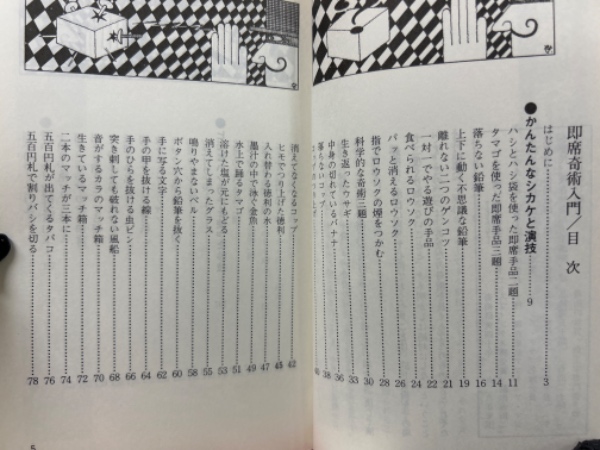 即席奇術入門／目次
はじめに……………3
●かんたんなシカケと演技……………9
ハシとハシ袋を使った即席手品二題……………11
タマゴを使った即席手品三題……………14
落ちない鉛筆……………16
上下に動く不思議な鉛筆……………19
離れない二つのゲンコツ……………21
一対一でやる遊びの手品……………22
食べられるロウソク……………24
パッと消えるロウソク……………26
指でロウソクの煙をつかむ……………28
科学的な奇術三題……………30
生き返ったウサギ……………33
中身の切れているバナナ……………36
落ちないコップ……………38
消えてなくなるコップ……………42
ヒモでつり上げた徳利……………45
入れ替わる徳利の水……………47
墨汁の中で泳ぐ金魚……………49
水上で踊るタマゴ……………51
溶けた塩が元にもどる……………53
消えてしまったグラス……………55
鳴りやまないベル……………58
ボタン穴から鉛筆を抜く……………60
手に写る文字……………62
手の甲を抜ける線……………64
手のひらを抜ける虫ピン……………66
突き刺しても破れない風船……………68
音がするカラのマッチ箱……………70
生きているマッチ箱……………72
二本のマッチが三本に……………74
五百円札が出てくるタバコ……………76
五百円札で割りバシを切る……………78
5